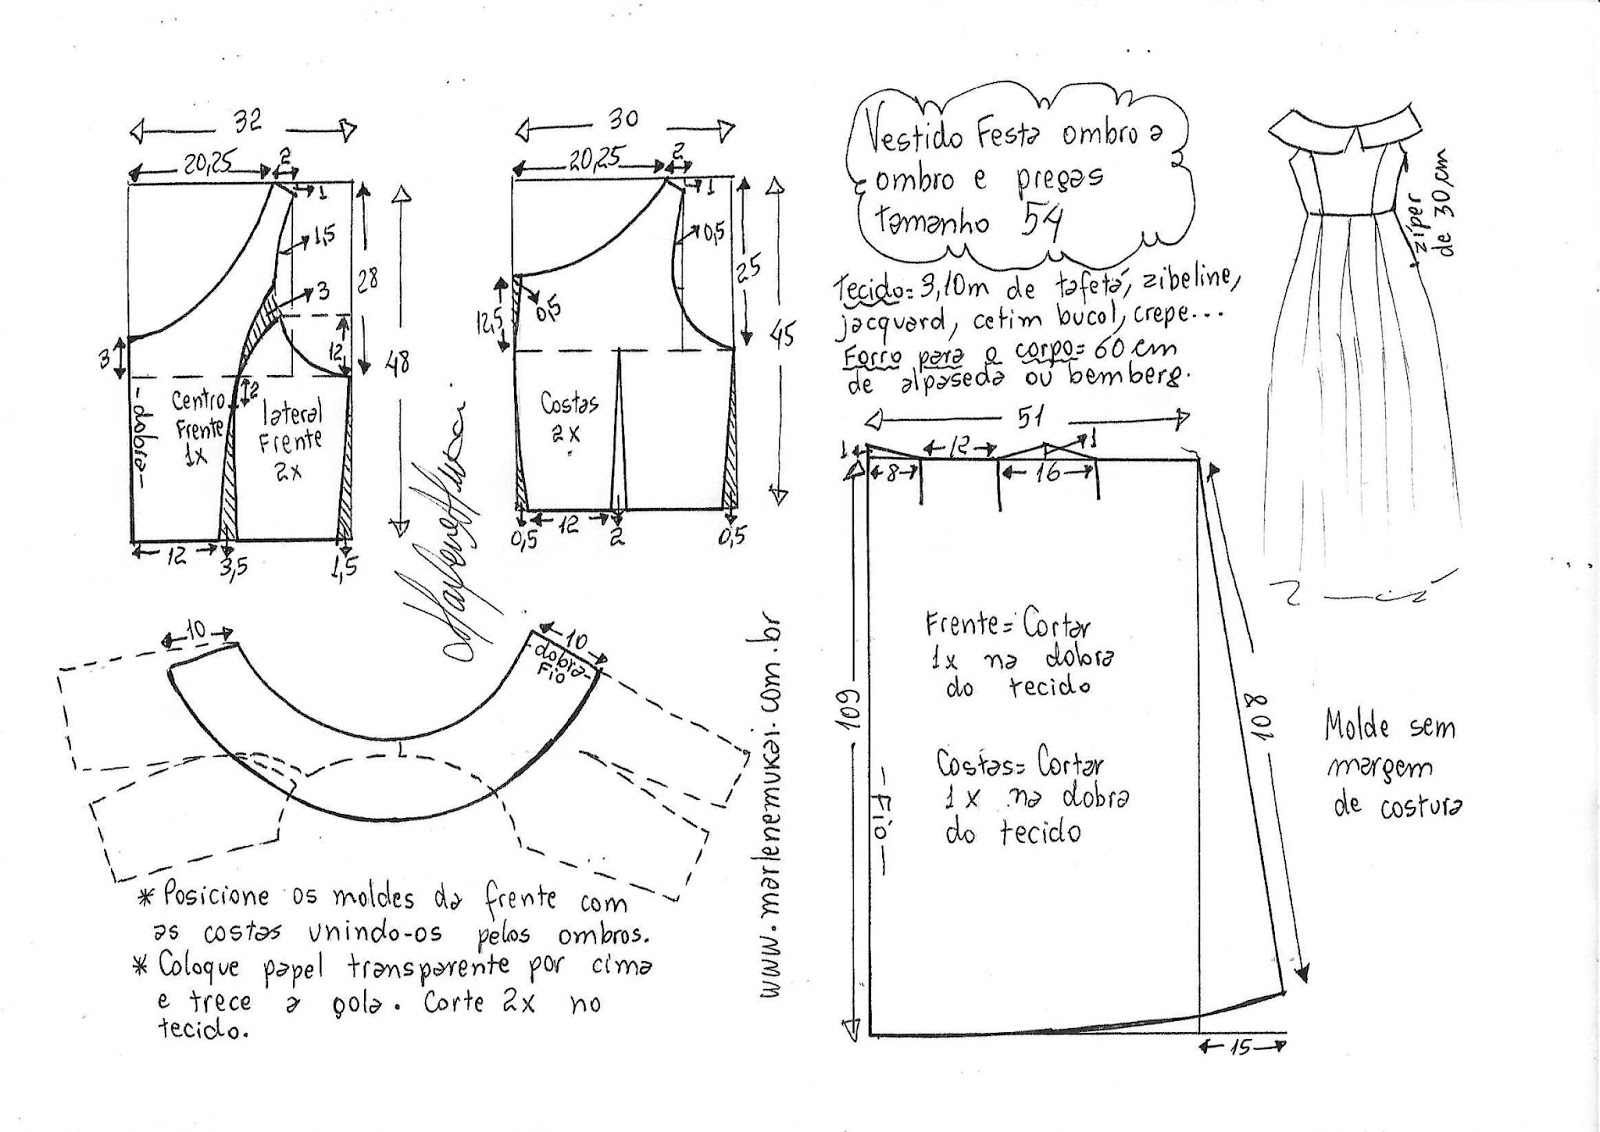 32
20,25
2
1
1,5
3
28
48
12
3
2
- dobra -
Centro
Frente
1x
lateral
Frente
2x
12
3,5
1,5
30
20,25
2
1
0,5
25
45
12,5
0,5
Costas
2x
0,5
12
2
0,5
Vestido Festa ombro a
ombro e pregas
tamanho 54
Tecido= 3,10m de tafetá, zibeline,
jacquard, cetim bucol, crepe...
Forro para o corpo= 60 cm
de alpaseda ou bemberg.
zíper
de 30 cm
51
1
12
1
8
16
109
108
- Fio -
Frente= Cortar
1x na dobra
do tecido
Costas= Cortar
1x na dobra
do tecido
15
Molde sem
margem
de costura
10
10
- dobra -
Fio
* Posicione os moldes da frente com
as costas unindo-os pelos ombros.
* Coloque papel transparente por cima
e trece a gola. Corte 2x no
tecido.
Marlene Mukai
www.marlenemukai.com.br